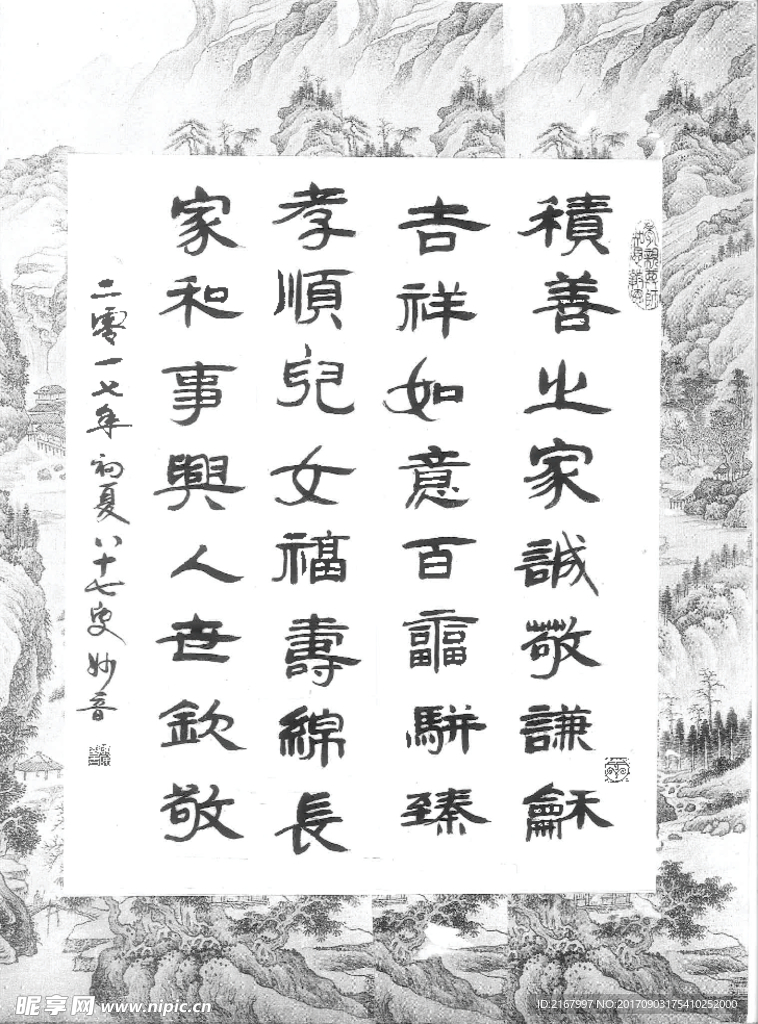 孝親尊師
積善之家誠敬謙龢
吉祥如意百福駢臻
孝順兒女福壽綿長
家和事興人世欽敬
二零一七年初夏八十七叟妙音
昵享网 www.nipic.cn
ID:2167997 NO:20170903175410252000